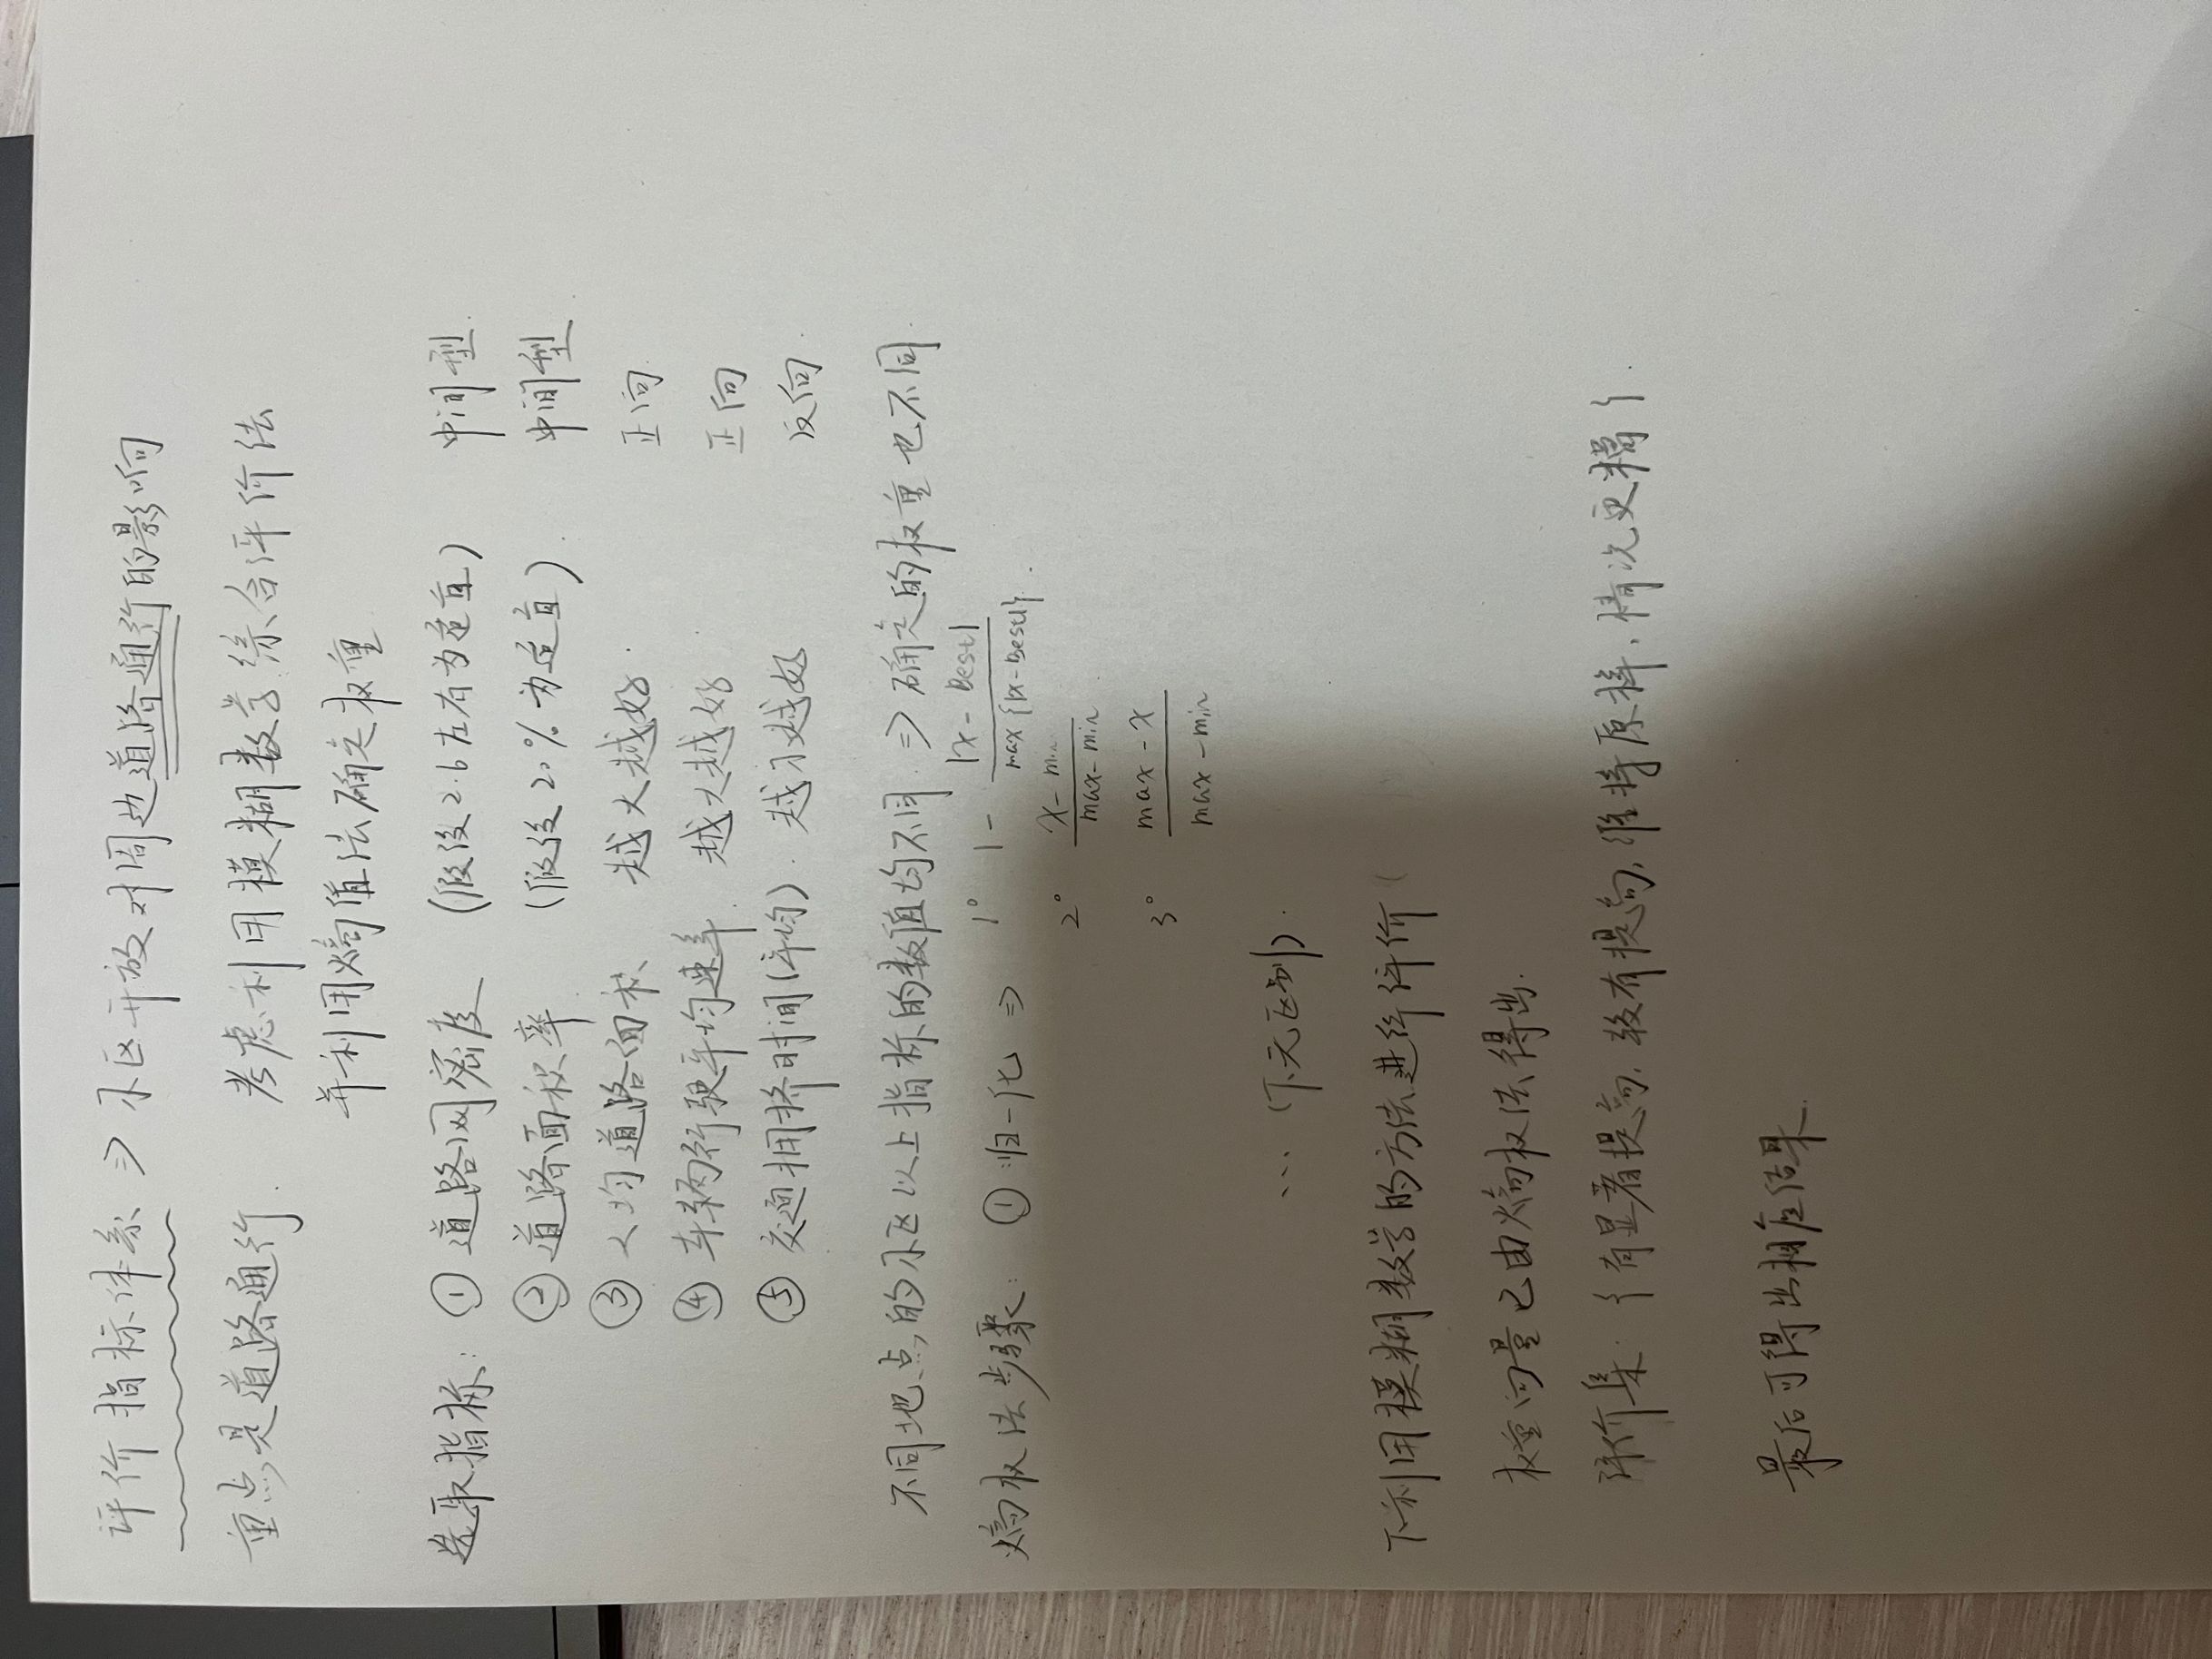 评价指标体系 ⇒ 小区开放对周边道路通行的影响
重点是道路通行. 考虑利用模糊数学综合评价法
并利用熵值法确定权重
选取指标: ① 道路网密度 (假设2.6左右为适宜) 中间型.
② 道路面积率 (假设20%为适宜). 中间型.
③ 人均道路面积 越大越好. 正向.
④ 车辆行驶平均速率. 越大越好 正向
⑤ 交通拥挤时间(平均). 越小越好 反向.
不同地点的小区以上指标的数值均不同 ⇒ 确定的权重也不同.
熵权法步骤: ① 归一化 ⇒ 1° 1 - |x - Best| / max{|x-Best|}.
2° x - min / max - min.
3° max - x / max - min
... (下无区别).
下利用模糊数学的方法进行评价
权重向量已由熵权法得出.
评价集: {有显著提高, 较有提高, 维持原样, 情况更糟}.
最后可得出相应结果.